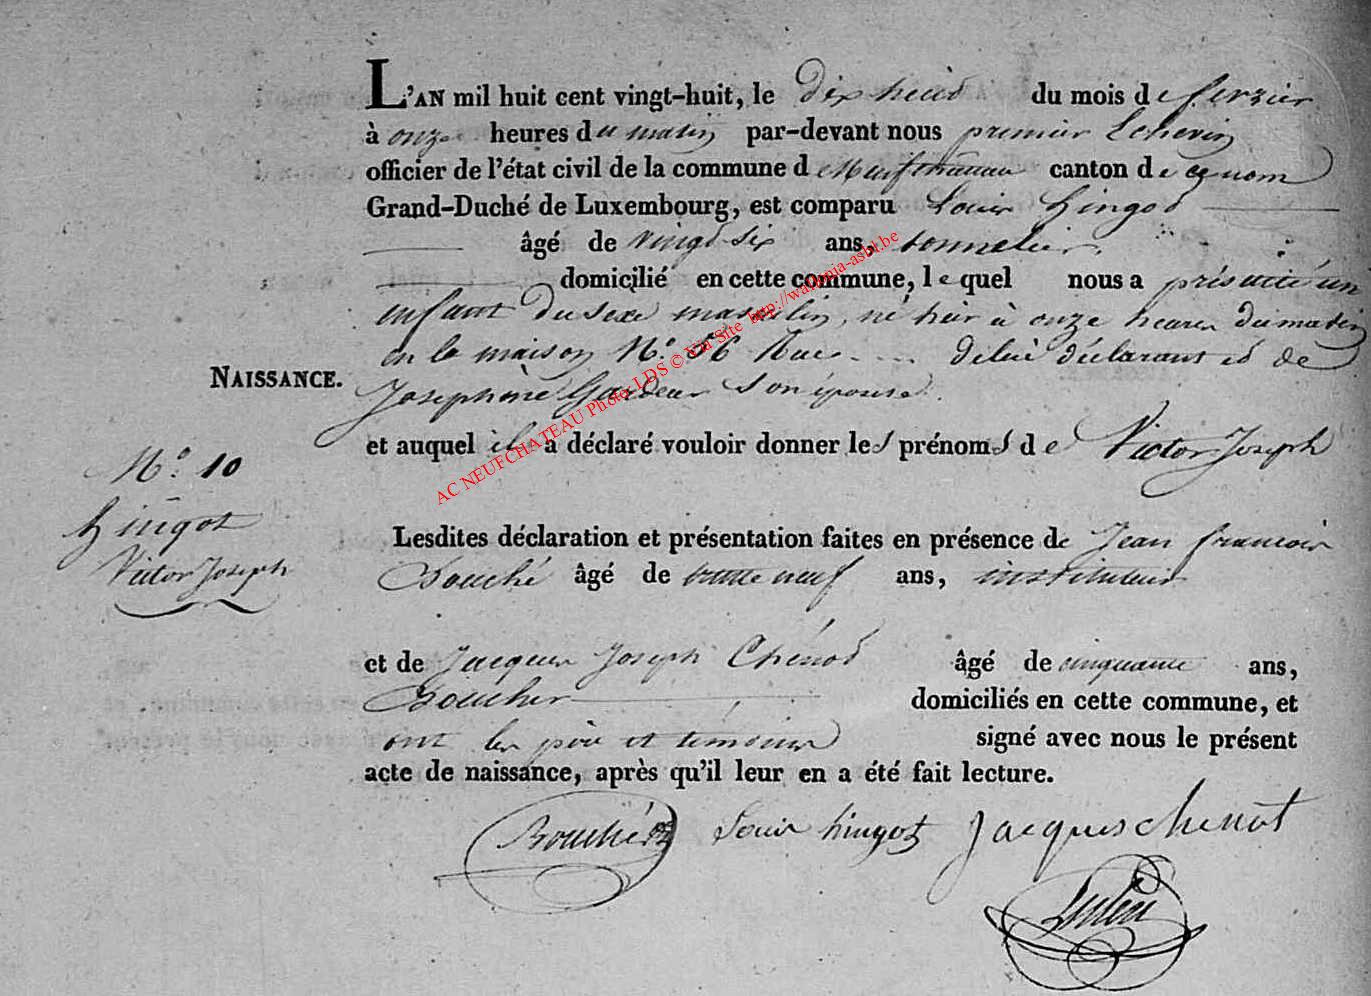 L'AN mil huit cent vingt-huit, le dix huit du mois de fevrier
à onze heures du matin par-devant nous premier Echevin
officier de l'état civil de la commune de Neufchateau canton de ce nom
Grand-Duché de Luxembourg, est comparu Louis Hingot
âgé de vingt six ans, tonnelier
domicilié en cette commune, lequel nous a présenté un
enfant du sexe masculin, né hier à onze heures du matin
en la maison N.° 56 Rue de lui déclarant et de
NAISSANCE.
Josephine Gardeur son épouse.
et auquel il a déclaré vouloir donner les prénoms de Victor Joseph
N.° 10
Hingot
Victor Joseph
Lesdites déclaration et présentation faites en présence de Jean francois
Bouché âgé de trente neuf ans, instituteur
et de Jacques Joseph Chénot âgé de cinquante ans,
Boucher domiciliés en cette commune, et
ont les père et témoins signé avec nous le présent
acte de naissance, après qu'il leur en a été fait lecture.
Bouché Louis hingot Jacques chenot
AC NEUFCHATEAU Photo LDS © Via Site http://wallonia-asbl.be